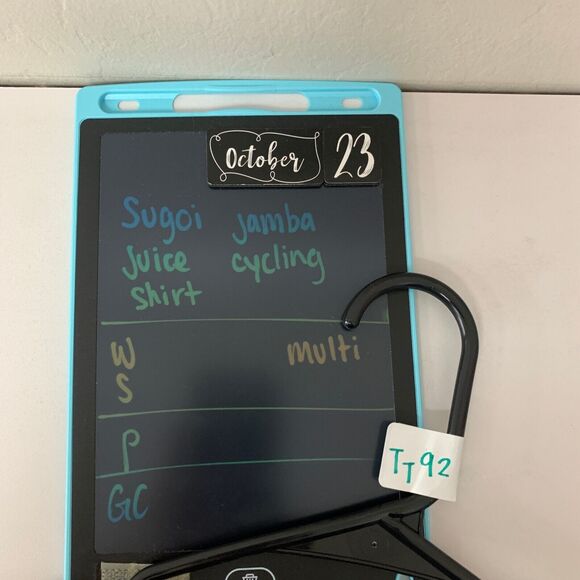 October 23
Sugoi jamba
Juice cycling
Shirt
W multi
S
P
GC
TT92